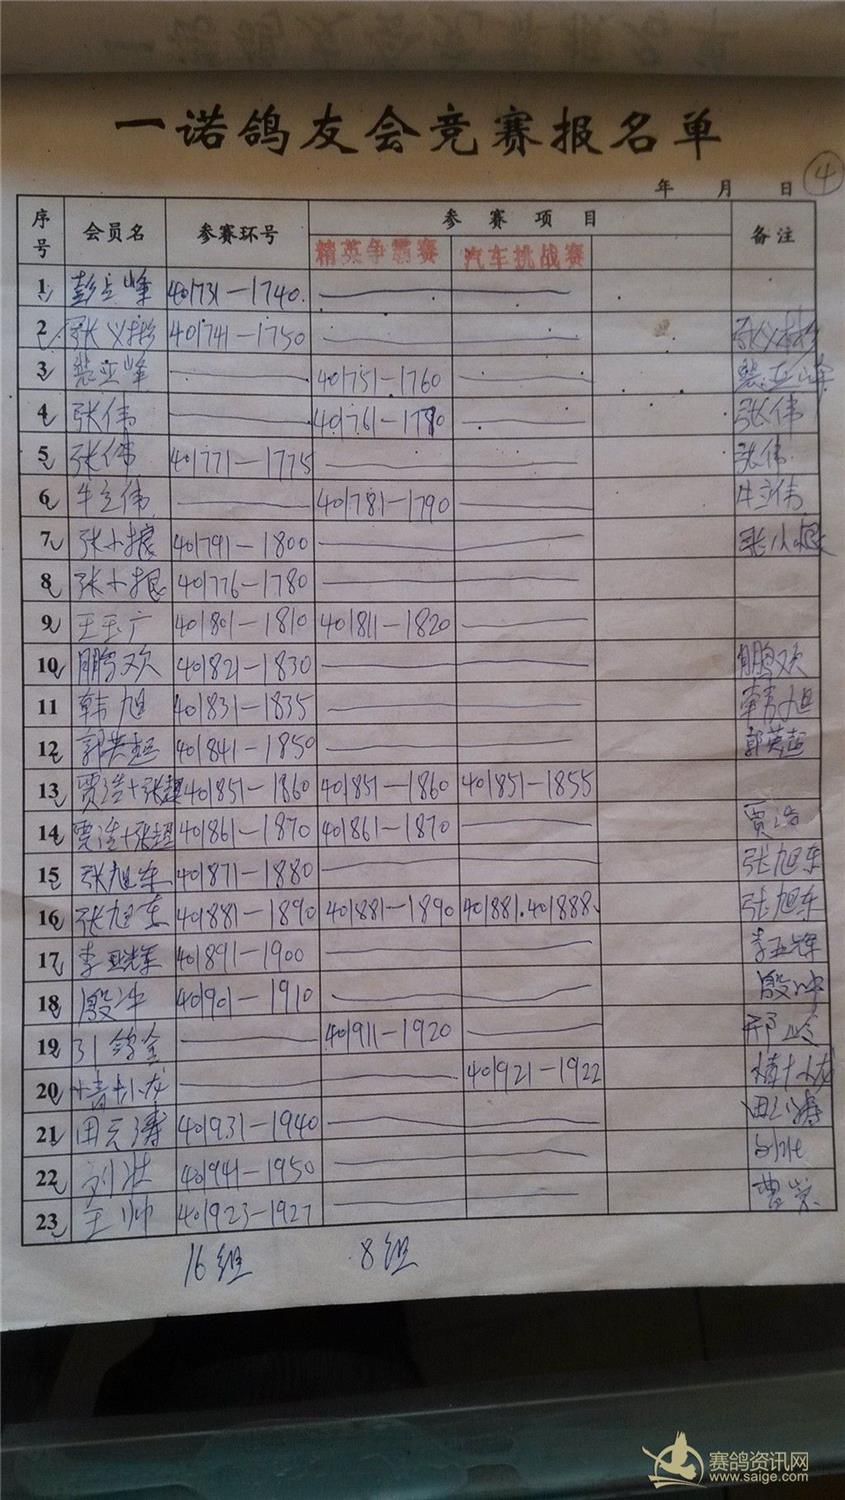 一诺鸽友会竞赛报名单
年 月 日 ④
序号 会员名 参赛环号 参 赛 项 目 备注
精英争霸赛 汽车挑战赛
1 彭立峰 401731—1740
2 张义彬 401741—1750 张义彬
3 裴亚峰 401751—1760 裴亚峰
4 张伟 401761—1770 张伟
5 张伟 401771—1775 张伟
6 牛立伟 401781—1790 牛立伟
7 张小根 401791—1800 张小根
8 张小根 401776—1780
9 王玉广 401801—1810 401811—1820
10 鹏欢 401821—1830 鹏欢
11 韩旭 401831—1835 韩旭
12 郭英超 401841—1850 郭英超
13 贾浩+张超 401851—1860 401851—1860 401851—1855
14 贾浩+张超 401861—1870 401861—1870 贾浩
15 张旭东 401871—1880 张旭东
16 张旭东 401881—1890 401881—1890 401881.401888 张旭东
17 李亚辉 401891—1900 李亚辉
18 殷冲 401901—1910 殷冲
19 401911—1920
20 401921—1922
21 田云涛 401931—1940
22 刘壮 401941—1950
23 王帅 401923—1927
16组 8组
赛鸽资讯网
www.saige.com